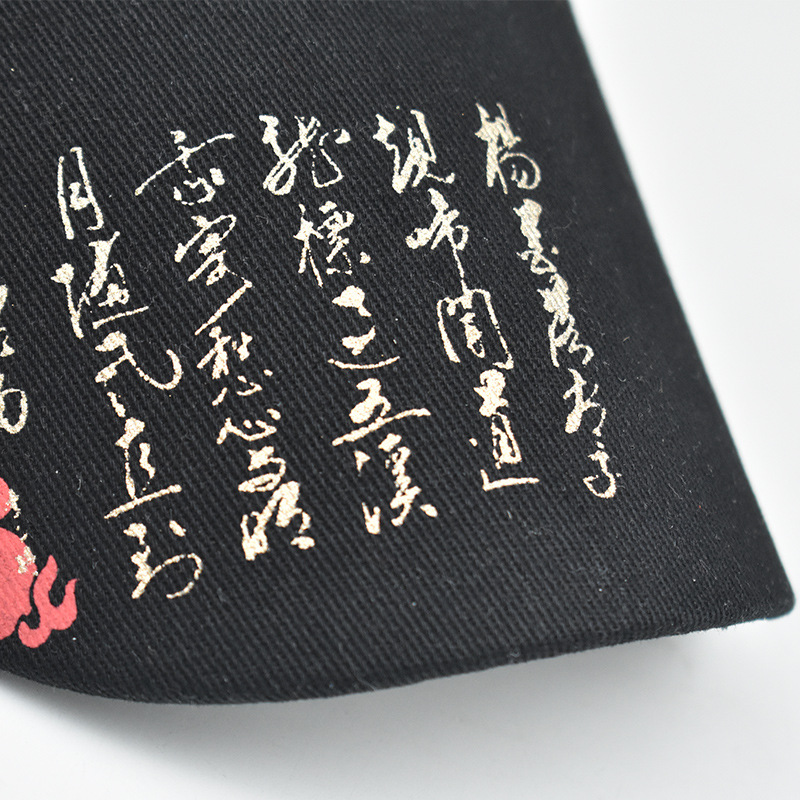 楊花落盡子
規啼聞道
龍標過五溪
我寄愁心與明
月隨風直到